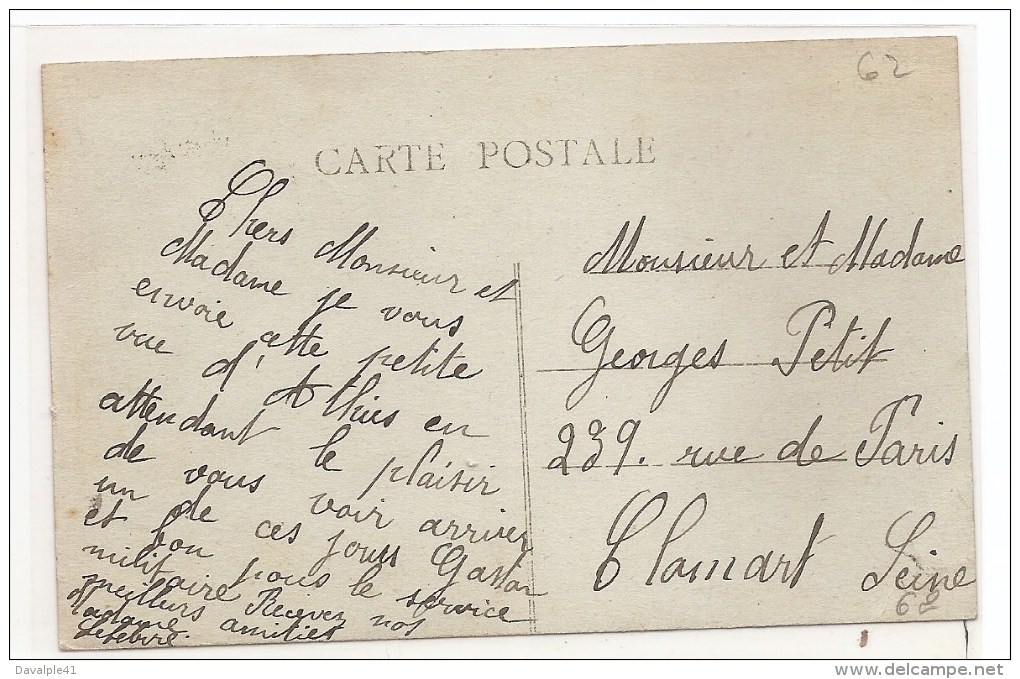 62
CARTE POSTALE
Chers Monsieur et
Madame je vous
envoie cette petite
vue d'Athies en
attendant le plaisir
de vous voir arriver
un de ces jours Gaston
et bon pour le service
militaire
Recevez nos
meilleurs amitiés
Madame
Lefebvre.
Monsieur et Madame
Georges Petit
239. rue de Paris
Clamart Seine
62
Davalple41
www.delcampe.net